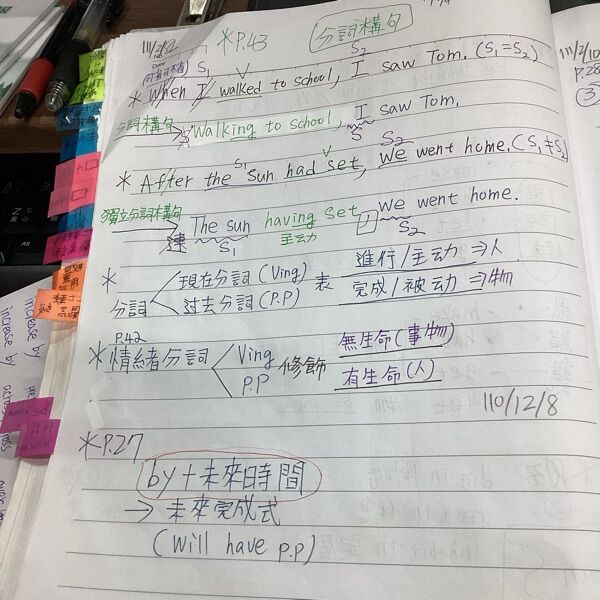 111/2/2 *P.43 分詞構句
(可有可省) S1 V S2
* When I walked to school, I saw Tom. (S1=S2)
分詞構句 → Walking to school, I saw Tom.
S S
S1 V S2
* After the sun had set, we went home. (S1≠S2)
獨立分詞構句 → The sun having set, we went home.
連 S1 主动 S2
* 分詞 現在分詞(Ving) 表 進行/主动 ⇒人
过去分詞(P.P) 完成/被动 ⇒物
P.42
* 情緒分詞 Ving 修飾 無生命(事物)
P.P 有生命(人)
110/12/8
*P.27
by+未來時間
→ 未來完成式
(will have p.p)
111/2/10
P.28
③
increase by